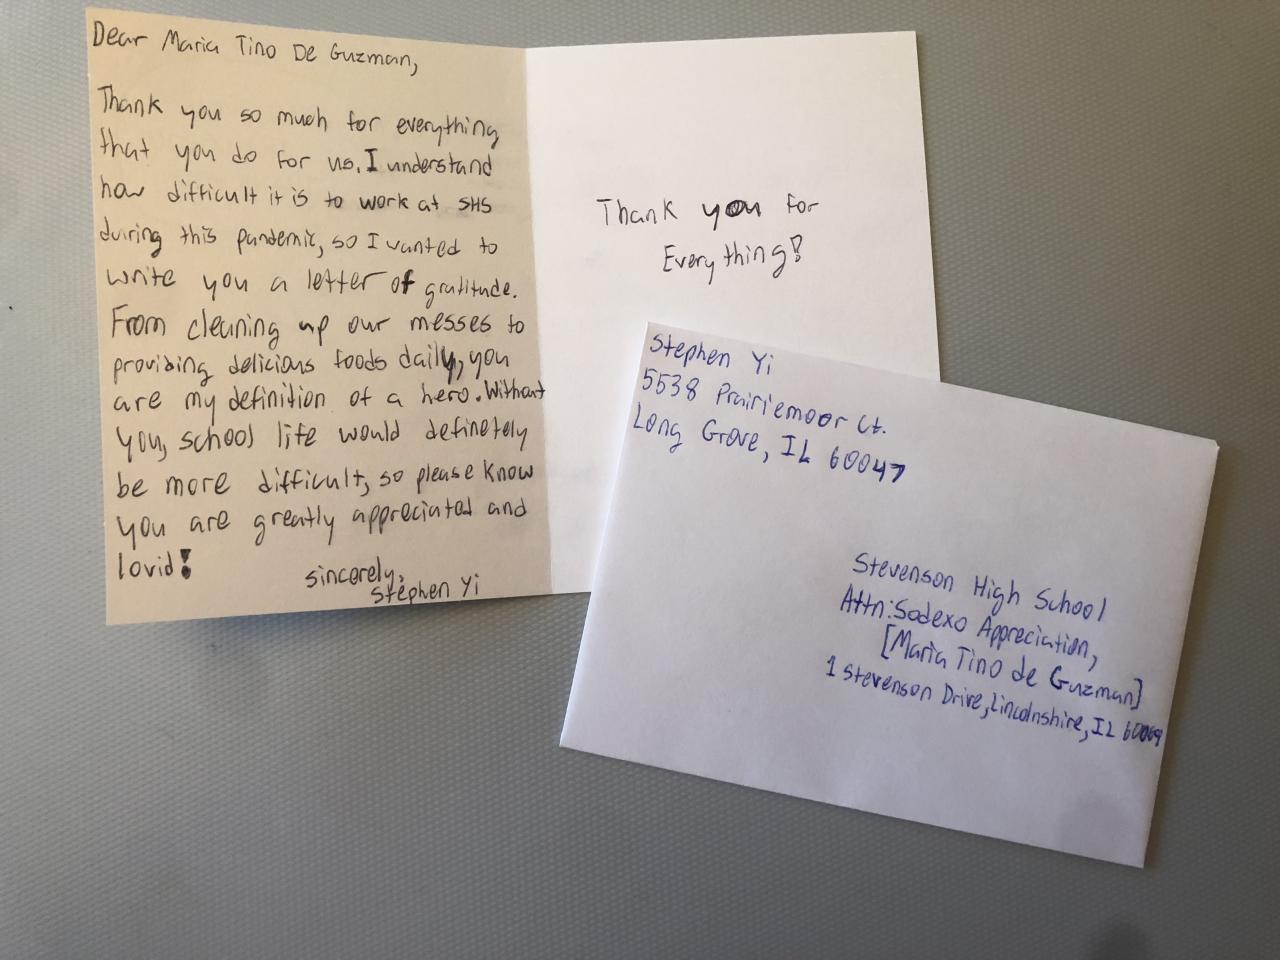 Dear Maria Tino De Guzman,
Thank you so much for everything
that you do for us. I understand
how difficult it is to work at SHS
during this pandemic, so I wanted to
write you a letter of gratitude.
From cleaning up our messes to
providing delicious foods daily, you
are my definition of a hero. Without
you, school life would definetely
be more difficult, so please know
you are greatly appreciated and
lovid!
sincerely,
Stephen Yi
Thank you for
Everything!
Stephen Yi
5538 Prairiemoor Ct.
Long Grove, IL 60047
Stevenson High School
Attn: Sodexo Appreciation,
[Maria Tino de Guzman]
1 Stevenson Drive, Lincolnshire, IL 60069